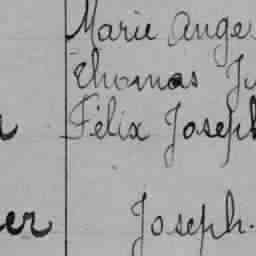 Marie Ange
Thomas Ju
Félix Joseph
er Joseph.